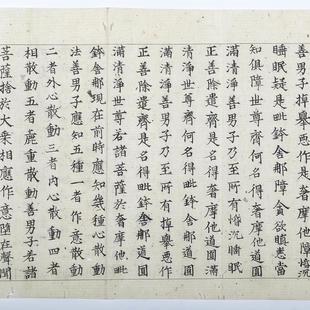 善男子掉舉惡作是奢摩他障惛沉
睡眠疑是毗鉢舍那障貪欲瞋恚當
知俱障世尊齊何名得奢摩他道圓
滿清淨善男子乃至所有惛沉睡眠
正善除遣齊是名得奢摩他道圓滿
清淨世尊齊何名得毗鉢舍那道圓
滿清淨善男子乃至所有掉舉惡作
正善除遣齊是名得毗鉢舍那道圓
滿清淨世尊若諸菩薩於奢摩他毗
鉢舍那現在前時應知幾種心散動
法善男子應知五種一者作意散動
二者外心散動三者內心散動四者
相散動五者麁重散動善男子若諸
菩薩捨於大乘相應作意墮在聲聞